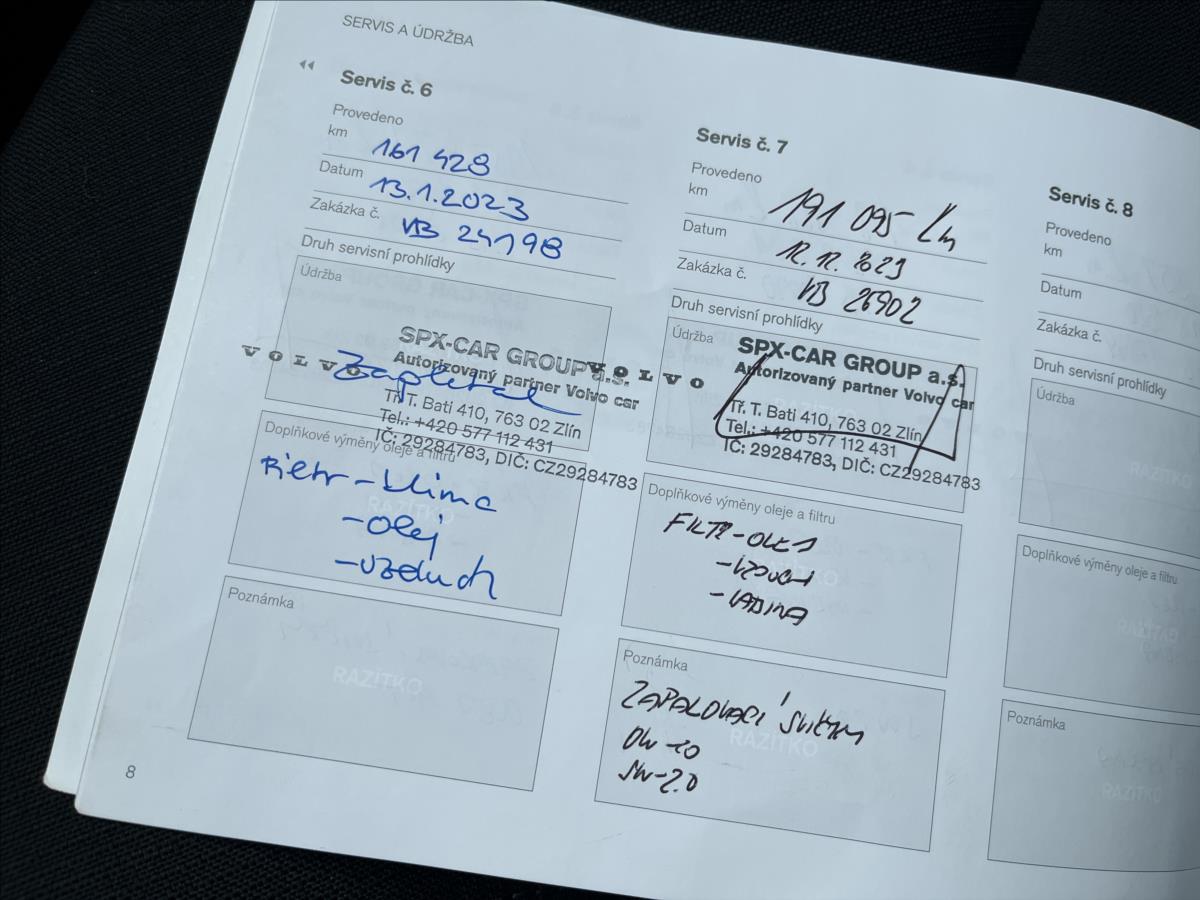 SERVIS A ÚDRŽBA
Servis č. 6
Provedeno
km
161 428
Datum
13.1.2023
Zakázka č.
VB 24198
Druh servisní prohlídky
Údržba
SPX-CAR GROUP a.s.
VOLVO
Autorizovaný partner Volvo car
Zapletal
Tř. T. Bati 410, 763 02 Zlín
Tel.: +420 577 112 431
IČ: 29284783, DIČ: CZ29284783
Doplňkové výměny oleje a filtru
Filtr - klima
- olej
- vzduch
RAZÍTKO
Poznámka
RAZÍTKO
8
Servis č. 7
Provedeno
km
191 095 km
Datum
12.12.2023
Zakázka č.
VB 26902
Druh servisní prohlídky
Údržba
SPX-CAR GROUP a.s.
VOLVO
Autorizovaný partner Volvo car
Tř. T. Bati 410, 763 02 Zlín
Tel.: +420 577 112 431
IČ: 29284783, DIČ: CZ29284783
Doplňkové výměny oleje a filtru
FILTR - OLEJ
- VZDUCH
- KABINA
RAZÍTKO
Poznámka
ZAPALOVACÍ SVÍČKY
RAZÍTKO
Servis č. 8
Provedeno
km
Datum
Zakázka č.
Druh servisní prohlídky
Údržba
RAZÍTKO
Doplňkové výměny oleje a filtru
RAZÍTKO
Poznámka
RAZÍTKO